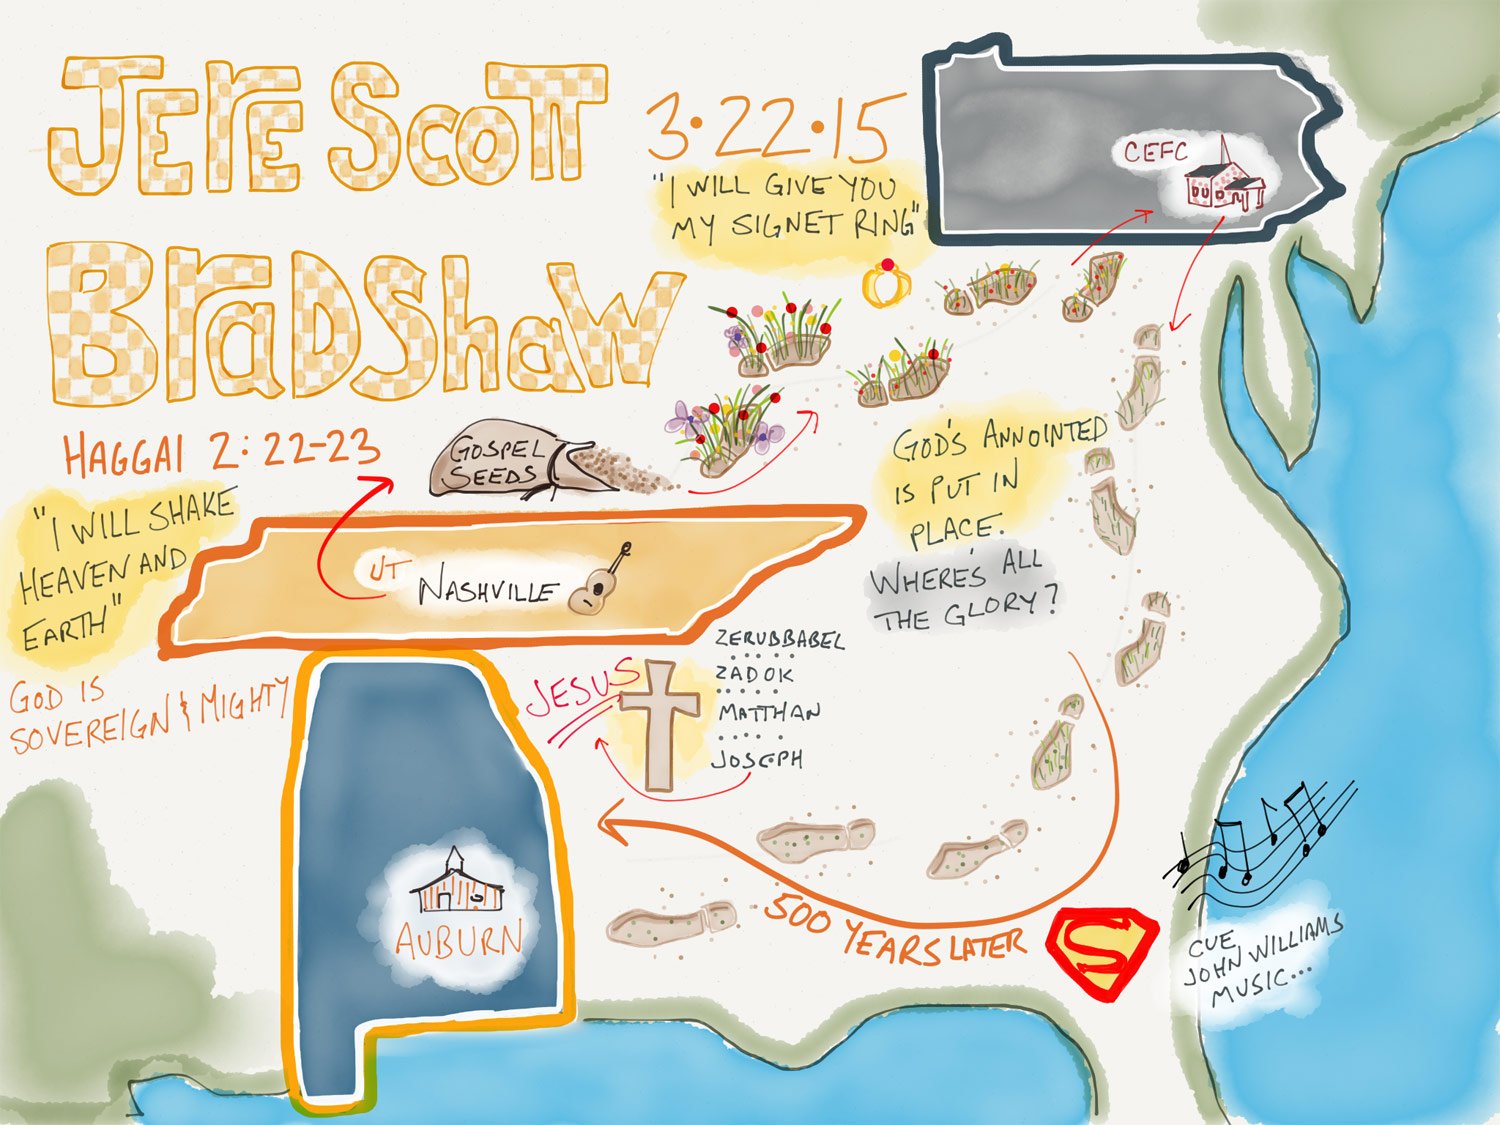 JERE SCOTT
BRADSHAW
3·22·15
"I WILL GIVE YOU
MY SIGNET RING"
CEFC
HAGGAI 2:22-23
"I WILL SHAKE
HEAVEN AND
EARTH"
GOD IS
SOVEREIGN & MIGHTY
GOSPEL
SEEDS
UT
NASHVILLE
GOD'S ANNOINTED
IS PUT IN
PLACE.
WHERE'S ALL
THE GLORY?
JESUS
ZERUBBABEL
.....
ZADOK
.....
MATTHAN
.....
JOSEPH
AUBURN
500 YEARS LATER
S
CUE
JOHN WILLIAMS
MUSIC...